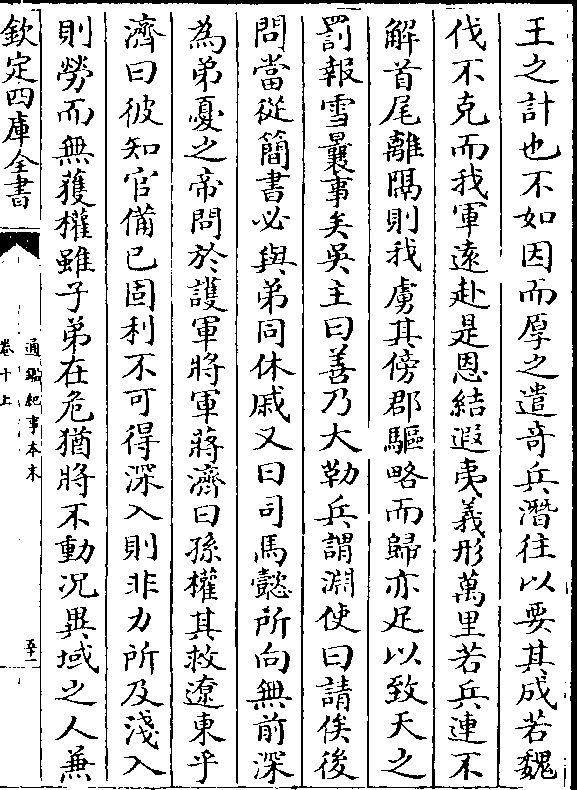 王之計也不如因而厚之遣竒兵潛往以要其成若魏
伐不克而我軍遠赴是恩結遐夷義形萬里若兵連不
解首尾離隔則我虜其傍郡驅略而歸亦足以致天之
罰報雪曩事矣吳主曰善乃大勒兵謂淵使曰請俟後
問當從簡書必與弟同休戚又曰司馬懿所向無前深
為弟憂之帝問於護軍將軍蔣濟曰孫權其救遼東乎
濟曰彼知官備已固利不可得深入則非力所及淺入
則勞而無獲權雖子弟在危猶將不動况異域之人兼
欽定四庫全書
通鑑紀事本末
卷十上
五十二